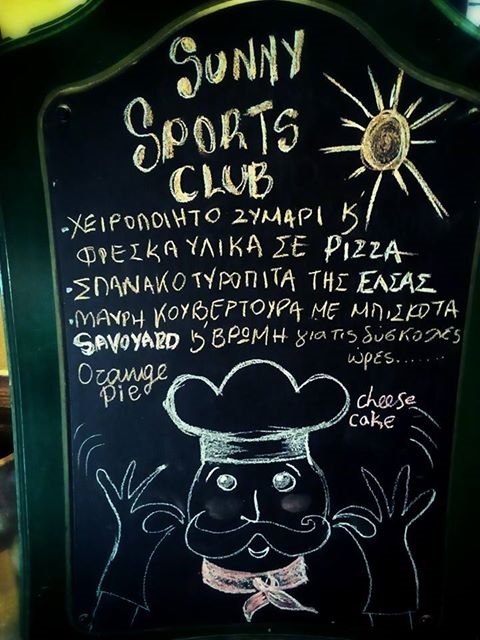 SUNNY
SPORTS
CLUB
·ΧΕΙΡΟΠΟΙΗΤΟ ΖΥΜΑΡΙ Κ'
ΦΡΕΣΚΑ ΥΛΙΚΑ ΣΕ PIZZA
·ΣΠΑΝΑΚΟΤΥΡΟΠΙΤΑ ΤΗΣ ΕΛΣΑΣ
·ΜΑΥΡΗ ΚΟΥΒΕΡΤΟΥΡΑ ΜΕ ΜΠΙΣΚΟΤΑ
SAVOYARD Κ' ΒΡΩΜΗ για τις δύσκολες
ώρες.......
Orange
Pie
cheese
cake